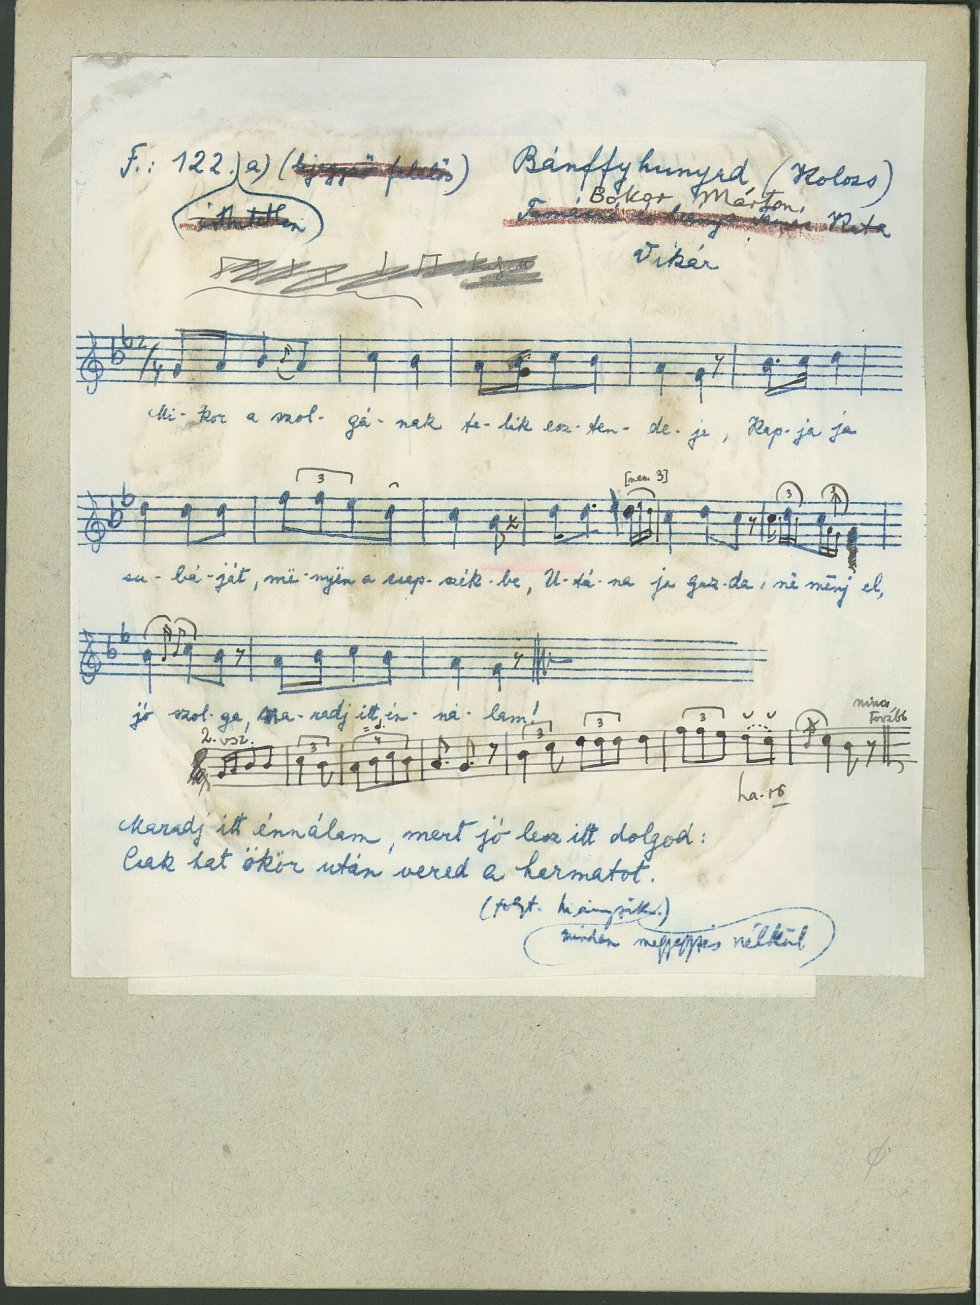 F.: 122. a) ( ) Bánffyhunyad (Kolozs)
Bókor Márton
Kata
Vikár
2/4
Mi- kor a szol- gá- nak te- lik esz- ten- de- je, Kap- ja ja
3 [nem 3] 3 3
su- bá- ját, më- nyën a csap- szék- be, U- tá- na ja gaz- da: në mënj el,
jó szol- ga, Ma- radj itt én- ná- lam!
2. vsz. 3 4 3 3 3 nincs
tovább
ha- ro
Maradj itt énnálam, mert jó lesz itt dolgod:
Csak hat ökör után vered a harmatot.
(folyt. hiányzik.)
minden megjegyzés nélkül